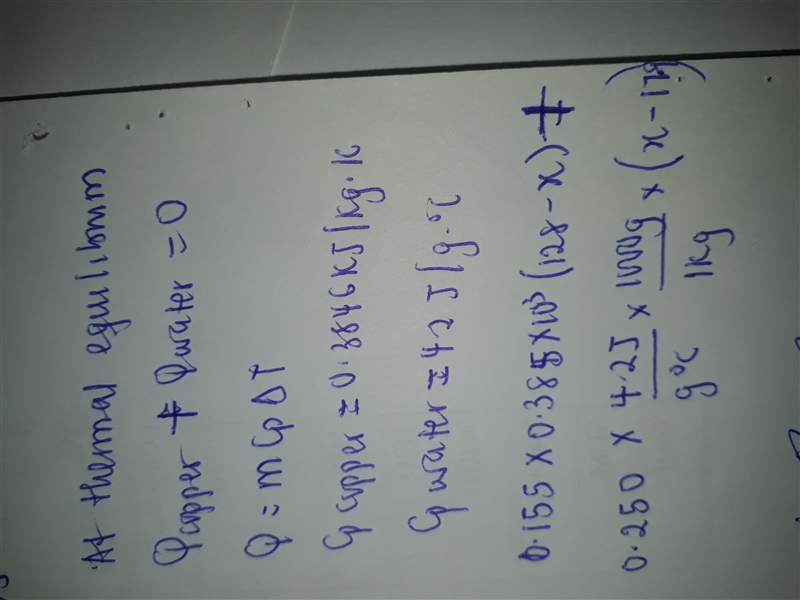 At thermal equilibrium
Qcopper + Qwater = 0
Q = mCpΔT
Cp copper = 0.3846KJ/Kg.K
Cp water = 4.2 J/g.°C
0.155 x 0.385x10³ (128-x) +
0.250 x 4.2J/g°C x 1000g/1Kg x (x-17)